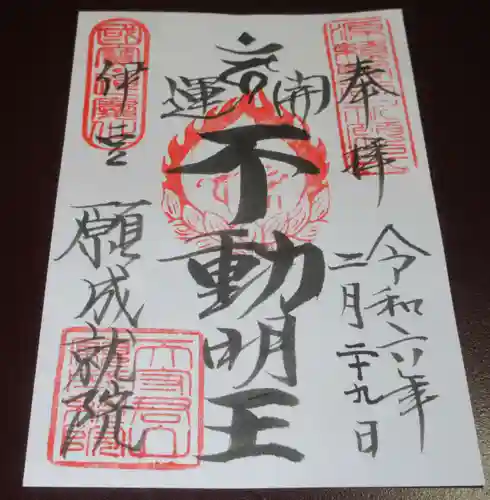 奉拝
令和六年
二月二十九日
開運
不動明王
伊豆
願成就院